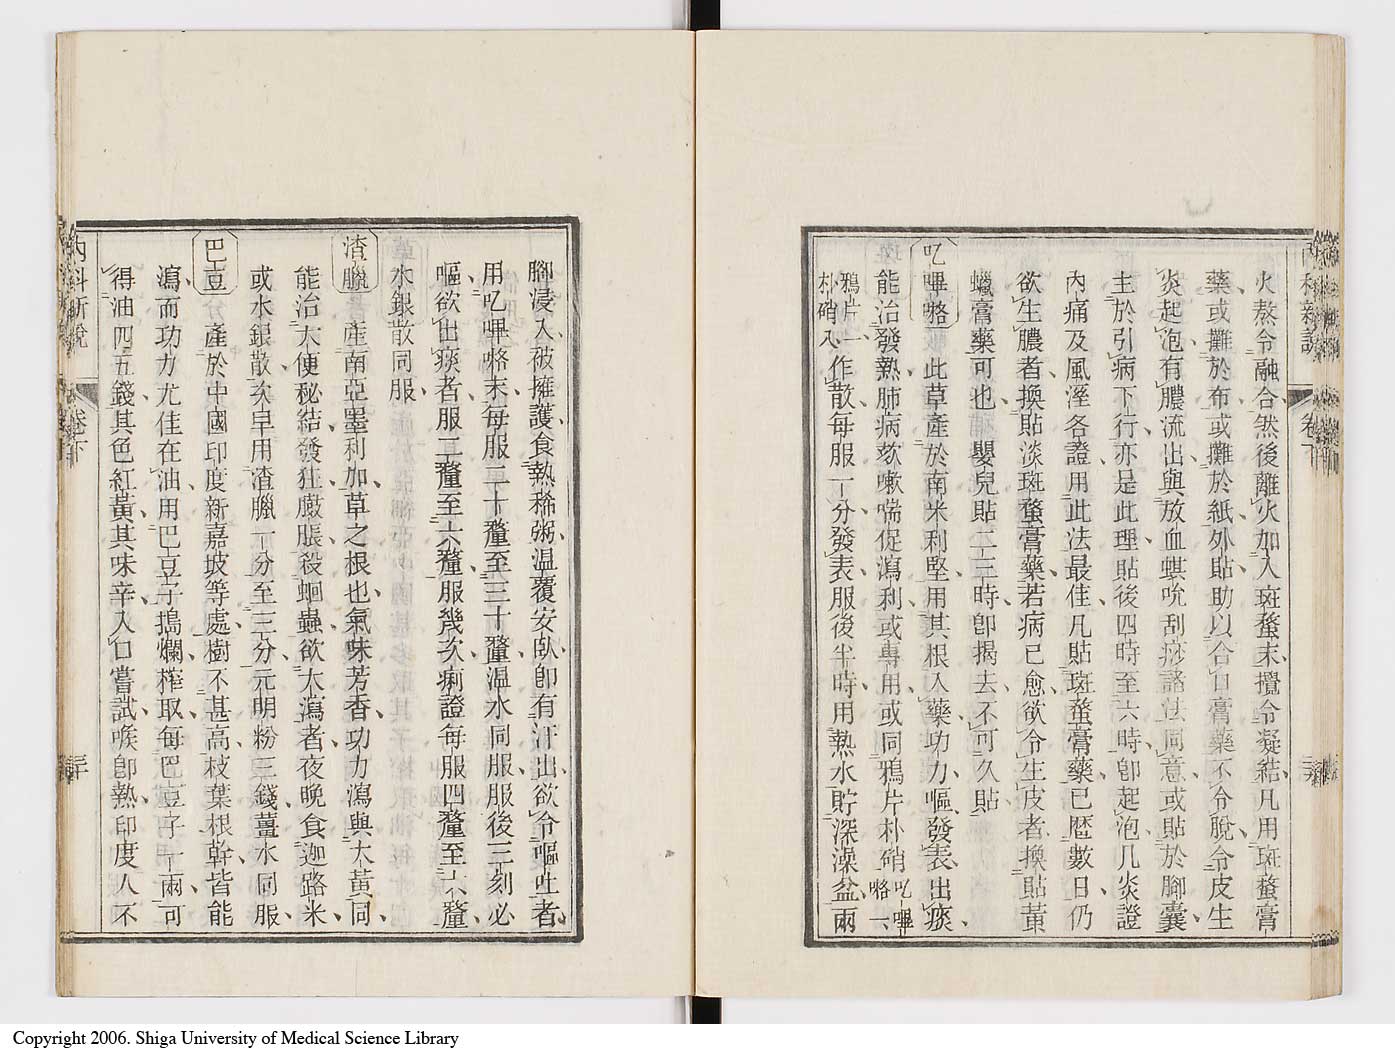 火熬令融合然後離火加入斑蝥末攪令凝結凡用斑蝥膏
藥或攤於布或攤於紙外貼助以合口膏藥不令脫令皮生
炎起泡有膿流出與放血蜞吮刮痧諸法同意或貼於腳囊
主於引病下行亦是此理貼後四時至六時卽起泡凡炎證
內痛及風溼各證用此法最佳凡貼斑蝥膏藥已曆數日仍
欲生膿者換貼淡斑蝥膏藥若病已愈欲令生皮者換貼蕫
蠟膏藥可也嬰兒貼二三時卽揭去不可久貼
吃嗶咯 此草產於南米利堅用其根入藥功力嘔發表出痰
能治發熱肺病欬嗽喘促瀉利或專用或同鴉片朴硝吃嗶咯一
鴉片一朴硝八作散每服一分發表服後半時用熱水貯深澡盆兩
內科新說 卷下
腳浸入被擁護食熱稀粥溫覆安臥卽有汗出欲令嘔吐者
用吃嗶咯末每服二十釐至三十釐溫水同服服後三刻必
嘔欲出痰者服二釐至六釐服幾次痢證每服四釐至六釐
水銀散同服
渣臘 產南亞墨利加草之根也氣味芳香功力瀉與大黃同
能治大便秘結發狂臌脹殺蛔蟲欲大瀉者夜晚食迦路米
或水銀散次早用渣臘一分至三分元明粉三錢薑水同服
巴豆 產於中國印度新嘉坡等處樹不甚高枝葉根幹皆能
瀉而功力尤佳在油用巴豆子搗爛榨取每巴豆子十兩可
得油四五錢其色紅黃其味辛入口嘗試喉卽熱印度人不
內科新說 卷下 三十